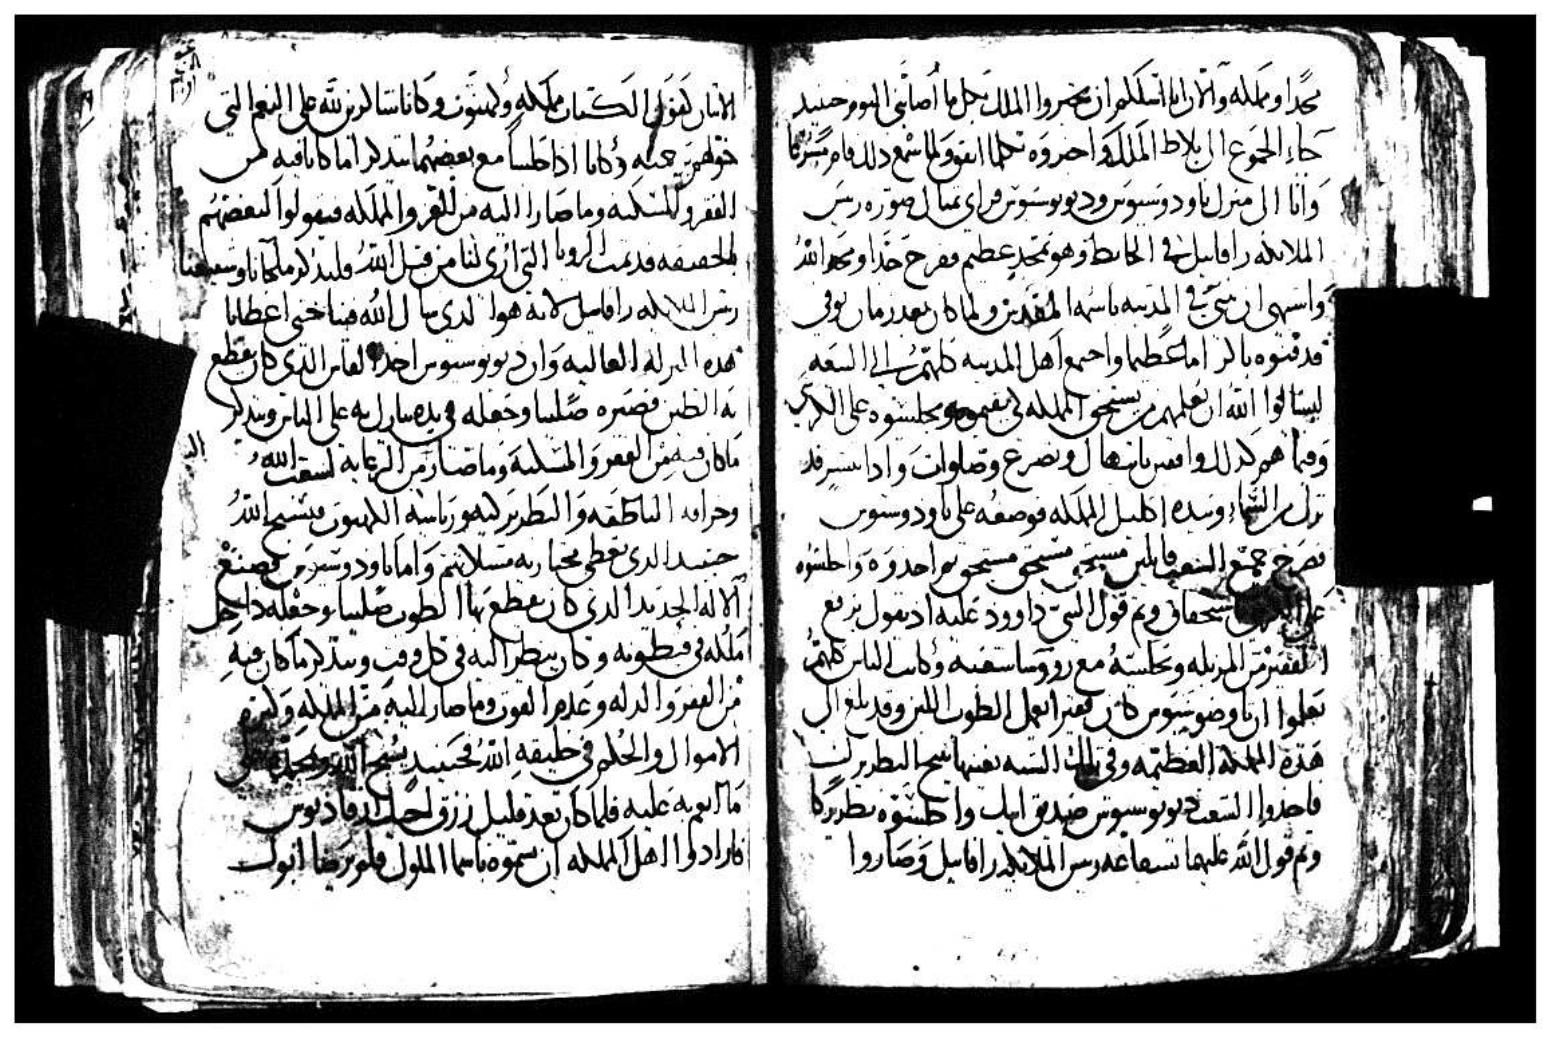 مجدا ومملكه والان انا اسلكم ان تخبروا الملك بكل ما أصابني اليوم حينيد
جاء الجموع الى بلاط الملك واخبروه بكلما اتفق ولما سمع ذلك قام مسرعا
وأتا الى منزل تاودوسيوس وديونوسيوس فراي تمثال صوره ريس
الملايكه رافاييل في الحايط وهو بمجد عظيم ففرح جدا ومجد الله
واشتهى ان يبني بيعه في المدينه باسمه المقدس ولما كان بعد زمان توفى
فدفنوه باكراما عظيما واجتمع أهل المدينه كلهم الى البيعه
ليسالوا الله ان يعلمهم من يستحق المملكه لكي يقيموه ويجلسوه على الكرسي
وفيما هم كذلك واقفين بابتهال وتضرع وصلوات واذا بنسر قد
نزل من السماء وبيده اكليل المملكه فوضعه على تاودوسيوس
فصرخ جميع الشعب قايلين مستحق مستحق مستحق ثم اخدوه واجلسوه
على الكرسي باستحقاق وتم قول النبي داوود عليه اد يقول يرفع
الفقير من المزبله ويجلسه مع رووسا شعبه وكانت الناس كلهم
يعلموا ان تاوضوسيوس كان فقيرا يعمل الطوب اللبن وقد بلغ الى
هذه المملكه العظيمه وفي تلك السنه بعينها تنيح البطريرك
فاخدوا الشعب ديونوسيوس صديق ايليا واجلسوه بطريركا
وتم قول الله عليهما بشفاعه ريس الملايكه رافاييل وصاروا
الاتنان كقول الكتاب مملكه وكهنوت وكانا شاكرين لله على النعم التي
خولهم من جهته وكانا اذا جلسا مع بعضهما يتدكرا ما كانا فيه من
الفقر والمسكنه وما صارا اليه من العز والمملكه فيقولوا لبعضهم
بالحقيقه قد تمت الرويا التي أري لنا من قبل الله
ريس الملايكه رافاييل لانه هو الدي سال الله فينا حتى اعطانا
هده المنزله العاليه وان ديونوسيوس اخد الفاس الدي كان يقطع
به الطين فصيره صليبا وجعله في يده يبارك به على الناس ويتدكر
ما كان فيه من الفقر والمسكنه وما صار من الرعايه لشعب الله
وخرافه الناطقه والبطريركيه ورياسه الكهنوت فيسبح الله
حينيد الدي يعطي مختاريه مسلاتهم وأما تاودوسيوس فصنع
الاله الحديد الدي كان يقطع بها الطوب صليبا وجعله داخل
ملكه في قيطونه وكان ينظر اليه في كل وقت ويتدكر ما كان فيه
من الفقر والدله وعدم القوت وما صار اليه من المملكه وكثره
الاموال والحكم في خليقه الله فحينيد يسبح الله ويمجده على
ما انعم به عليه فلما كان بعد قليل رزق
فارادوا اهل المملكه ان يسموه باسما الملوك فلم يرضا ابوه